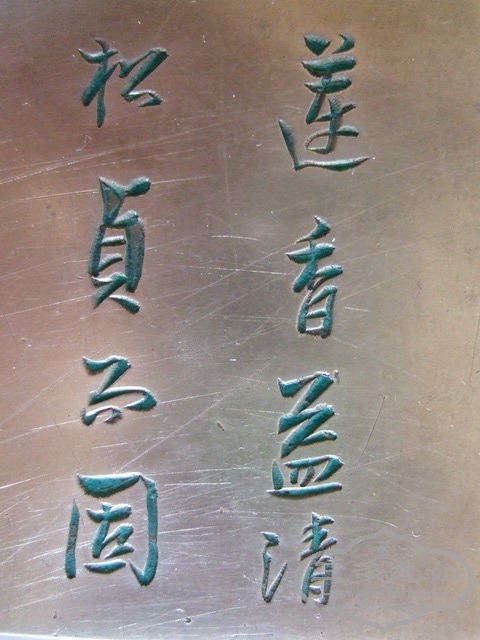 蓮香益清
松貞不固